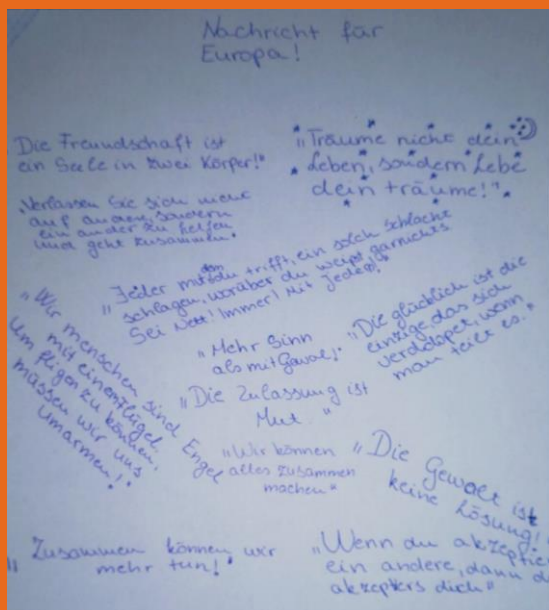 Nachricht für
Europa!
Die Freundschaft ist
ein Seele in zwei Körper!"
"Träume nicht dein
Leben, sondern Lebe
dein träume!"
"Verlassen Sie sich nicht
auf andren, sondern
ein ander zu helfen
und geht zusammen."
"Jeder mit dem du trifft, ein solch schlacht
schlagen, worüber du weißt garnichts
Sei Nett! Immer! Mit Jeden!"
"Wir menschen sind Engel
mit einenflügel.
Um fligen zu können,
müssen wir uns
umarmen!"
"Mehr Sinn
als mit Gewalt"
"Die glücklich ist die
einzige, das sich
verdoppet, wann
man teilt es."
"Die Zulassung ist
Mut "
"Wir können
alles zusammen
machen"
"Die Gewalt ist
keine Lösung!
"Zusammen können wir
mehr tun!"
"Wenn du akzeptie
ein andere, dann d
akzepters dich"